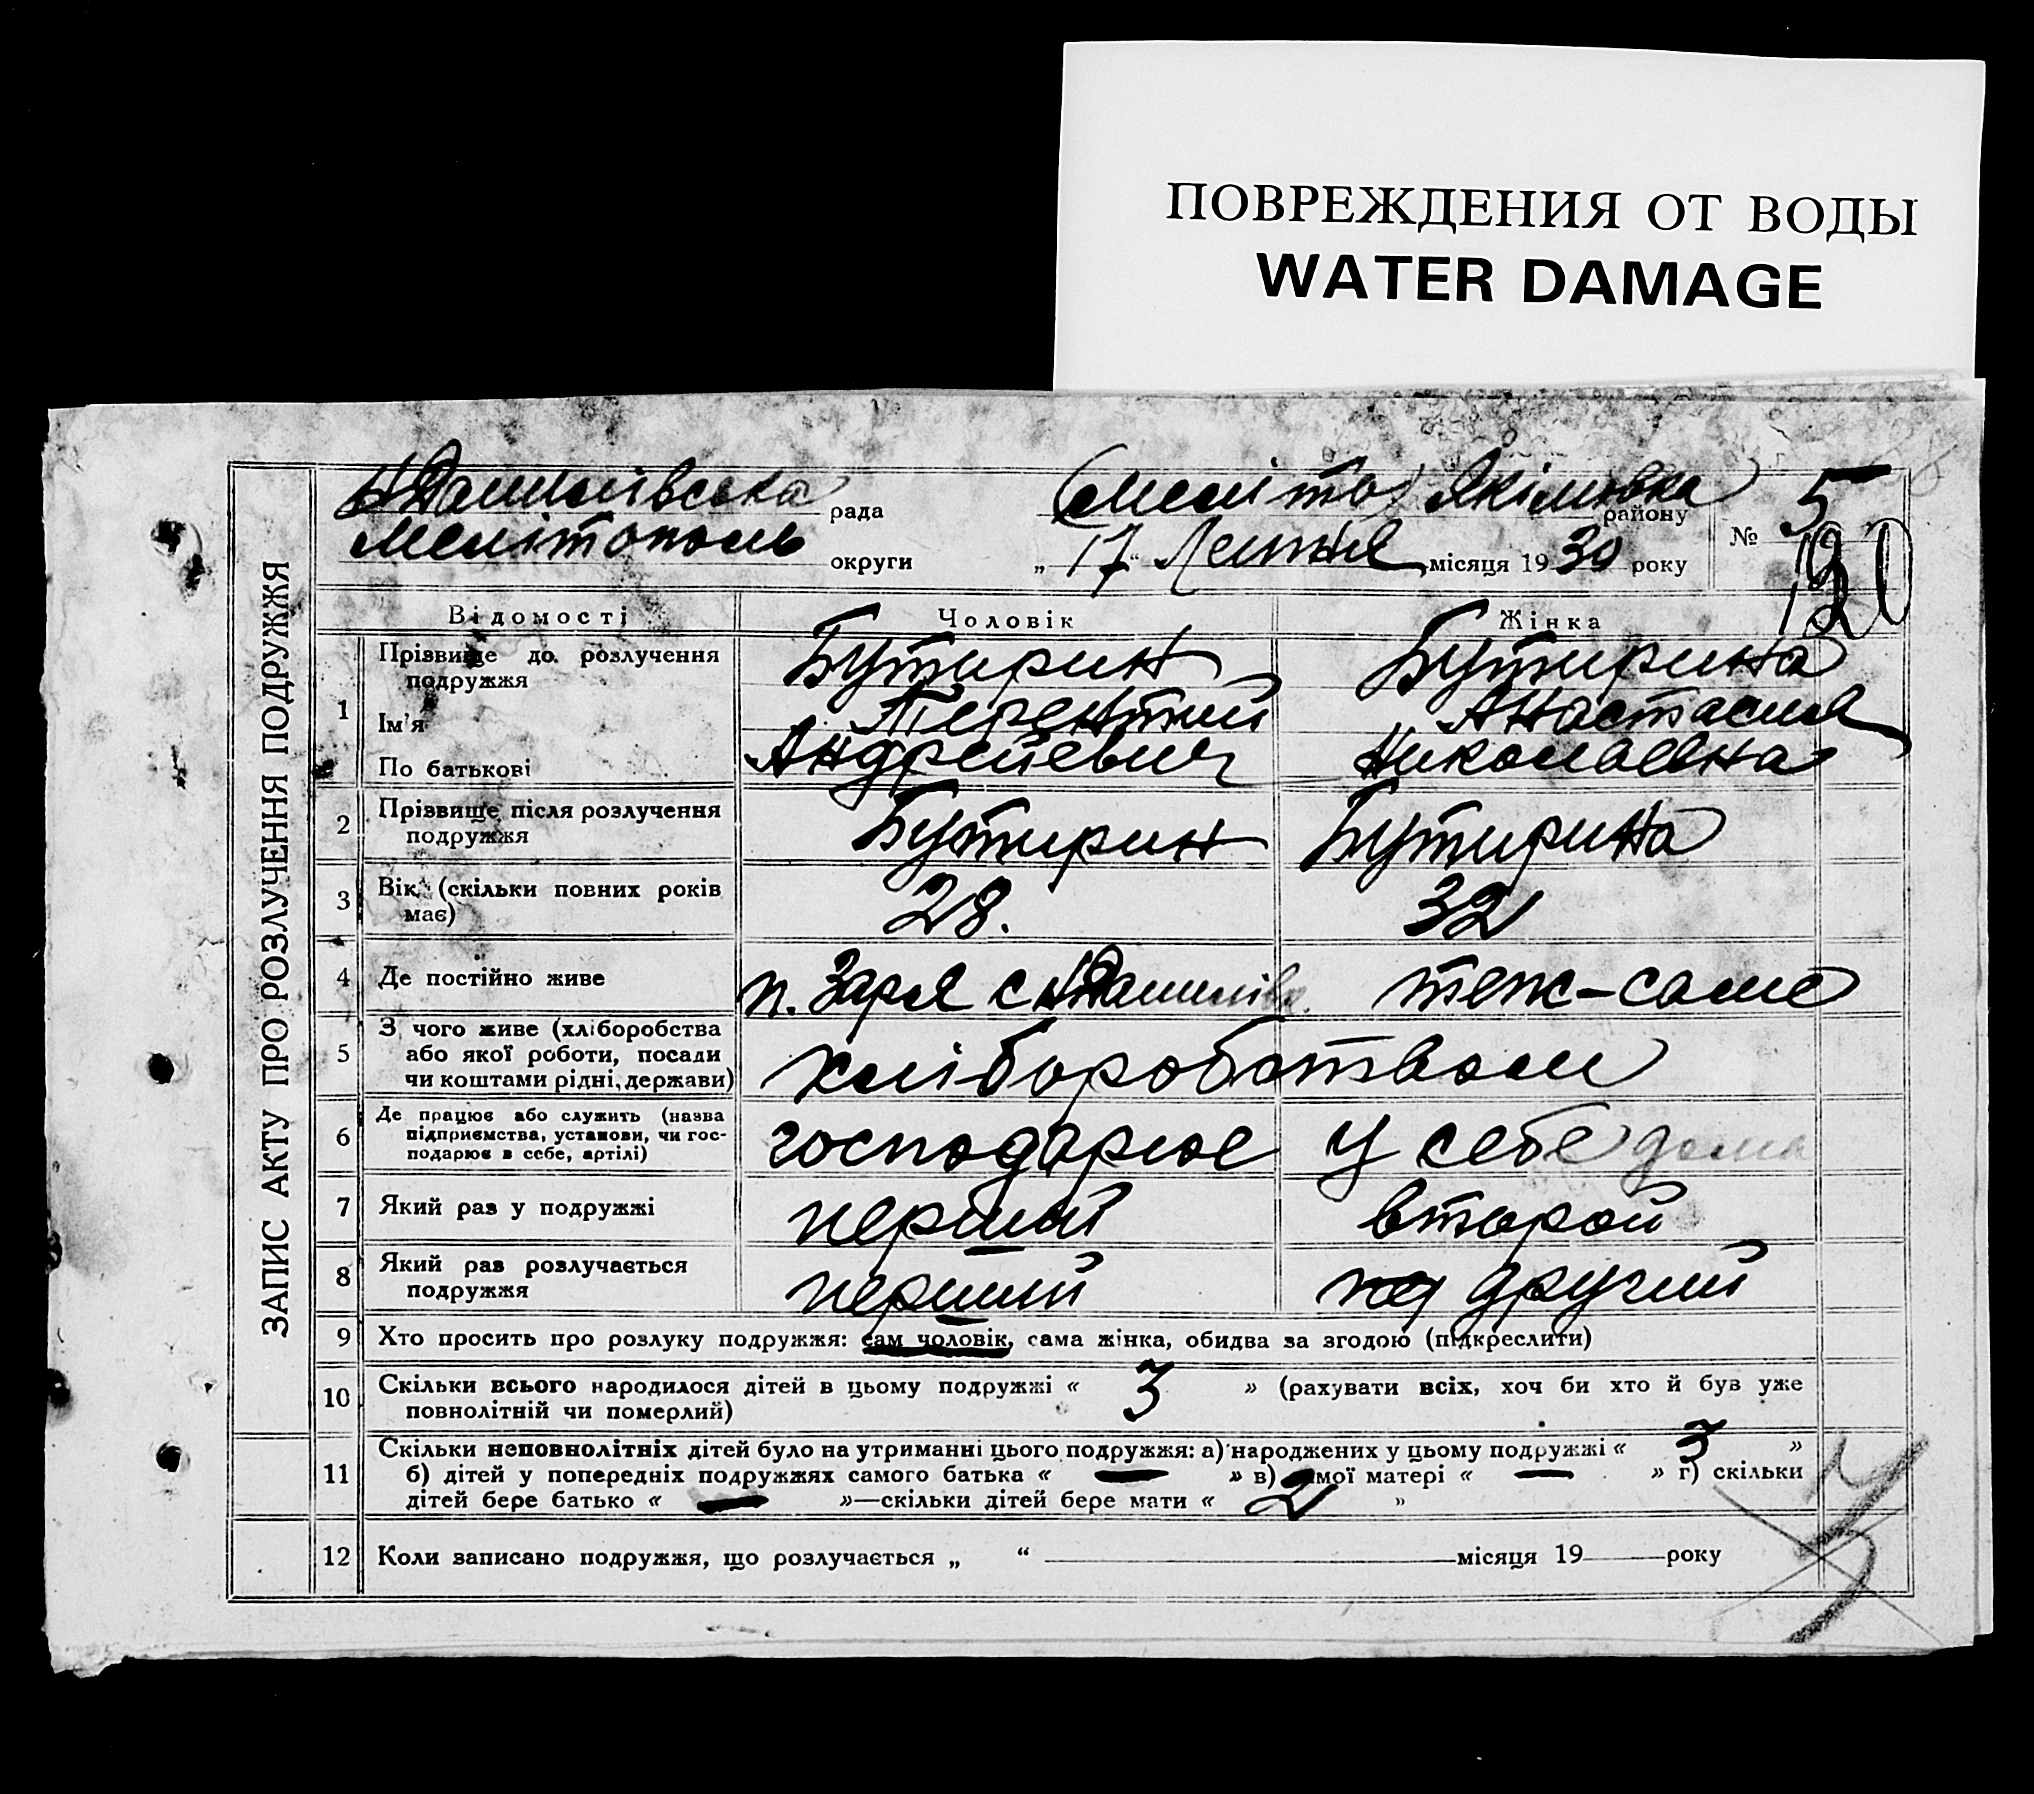 ПОВРЕЖДЕНИЯ ОТ ВОДЫ
WATER DAMAGE
ЗАПИС АКТУ ПРО РОЗЛУЧЕННЯ ПОДРУЖЖЯ
рада (Меліто) Якімовка району № 5
Мелітополь округи „ 17 “ місяця 1930 року
120
Відомості Чоловік Жінка
1 Прізвище до розлучення подружжя Бутирин Бутирина
Ім'я Терентий Анастасия
По батькові Андреевич Николаевна
2 Прізвище після розлучення подружжя Бутирин Бутирина
3 Вік (скільки повних років має) 28. 32
4 Де постійно живе п. Заря с теж-саме
5 З чого живе (хліборобства або якої роботи, посади чи коштами рідні, держави) хліборобством
6 Де працює або служить (назва підприємства, установи, чи господарює в себе, артілі) господарює у себе дома
7 Який раз у подружжі перший второй
8 Який раз розлучається подружжя перший другий
9 Хто просить про розлуку подружжя: сам чоловік, сама жінка, обидва за згодою (підкреслити)
10 Скільки всього народилося дітей в цьому подружжі « 3 » (рахувати всіх, хоч би хто й був уже
повнолітній чи померлий)
11 Скільки неповнолітніх дітей було на утриманні цього подружжя: а) народжених у цьому подружжі « 3 »
б) дітей у попередніх подружжях самого батька « — » в) самої матері « — » г) скільки
дітей бере батько « — »—скільки дітей бере мати « 2 »
12 Коли записано подружжя, що розлучається „ “ місяця 19 року